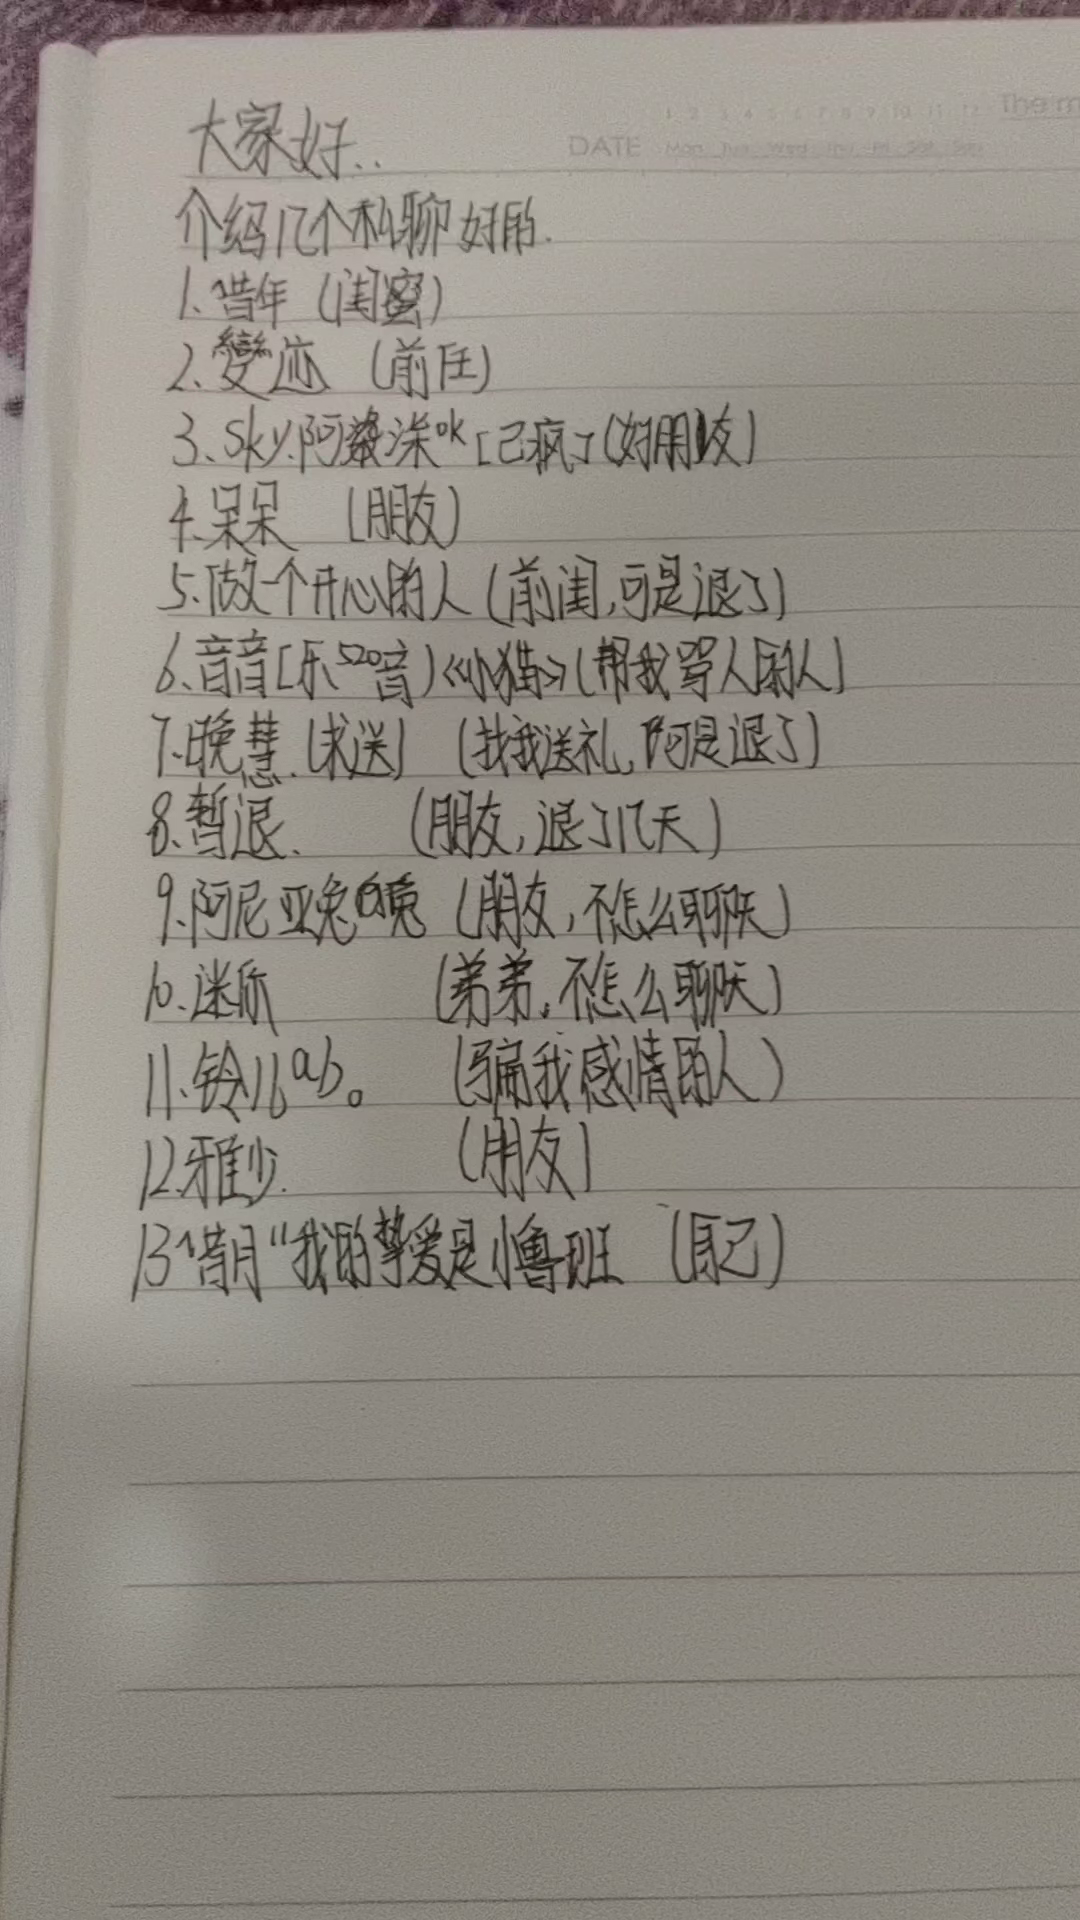 The m
1 2 3 4 5 6 7 8 9 10 11 12
DATE Mon Tue Wed Thu Fri Sat Sun
大家好..
介绍几个私聊好的.
1.惜年 (闺蜜)
2.變迹 (前任)
3.sky.阿 涂ok [己疯] (好朋友)
4.呆呆 (朋友)
5.做一个开心的人 (前闺,可是退了)
6.音音[乐520音)《小猫》(帮我骂人
7.晚慧.(求送) (找我送礼,可是退了)
8.暂退. (朋友,退了几天)
9.阿尼亚兔 (朋友,不怎么聊天)
10.迷你 (弟弟.不怎么聊天)
11.铃儿ab。 (骗我感情的人)
12.雅少. (朋友)
13惜月“我的挚爱是小鲁班 (自己)